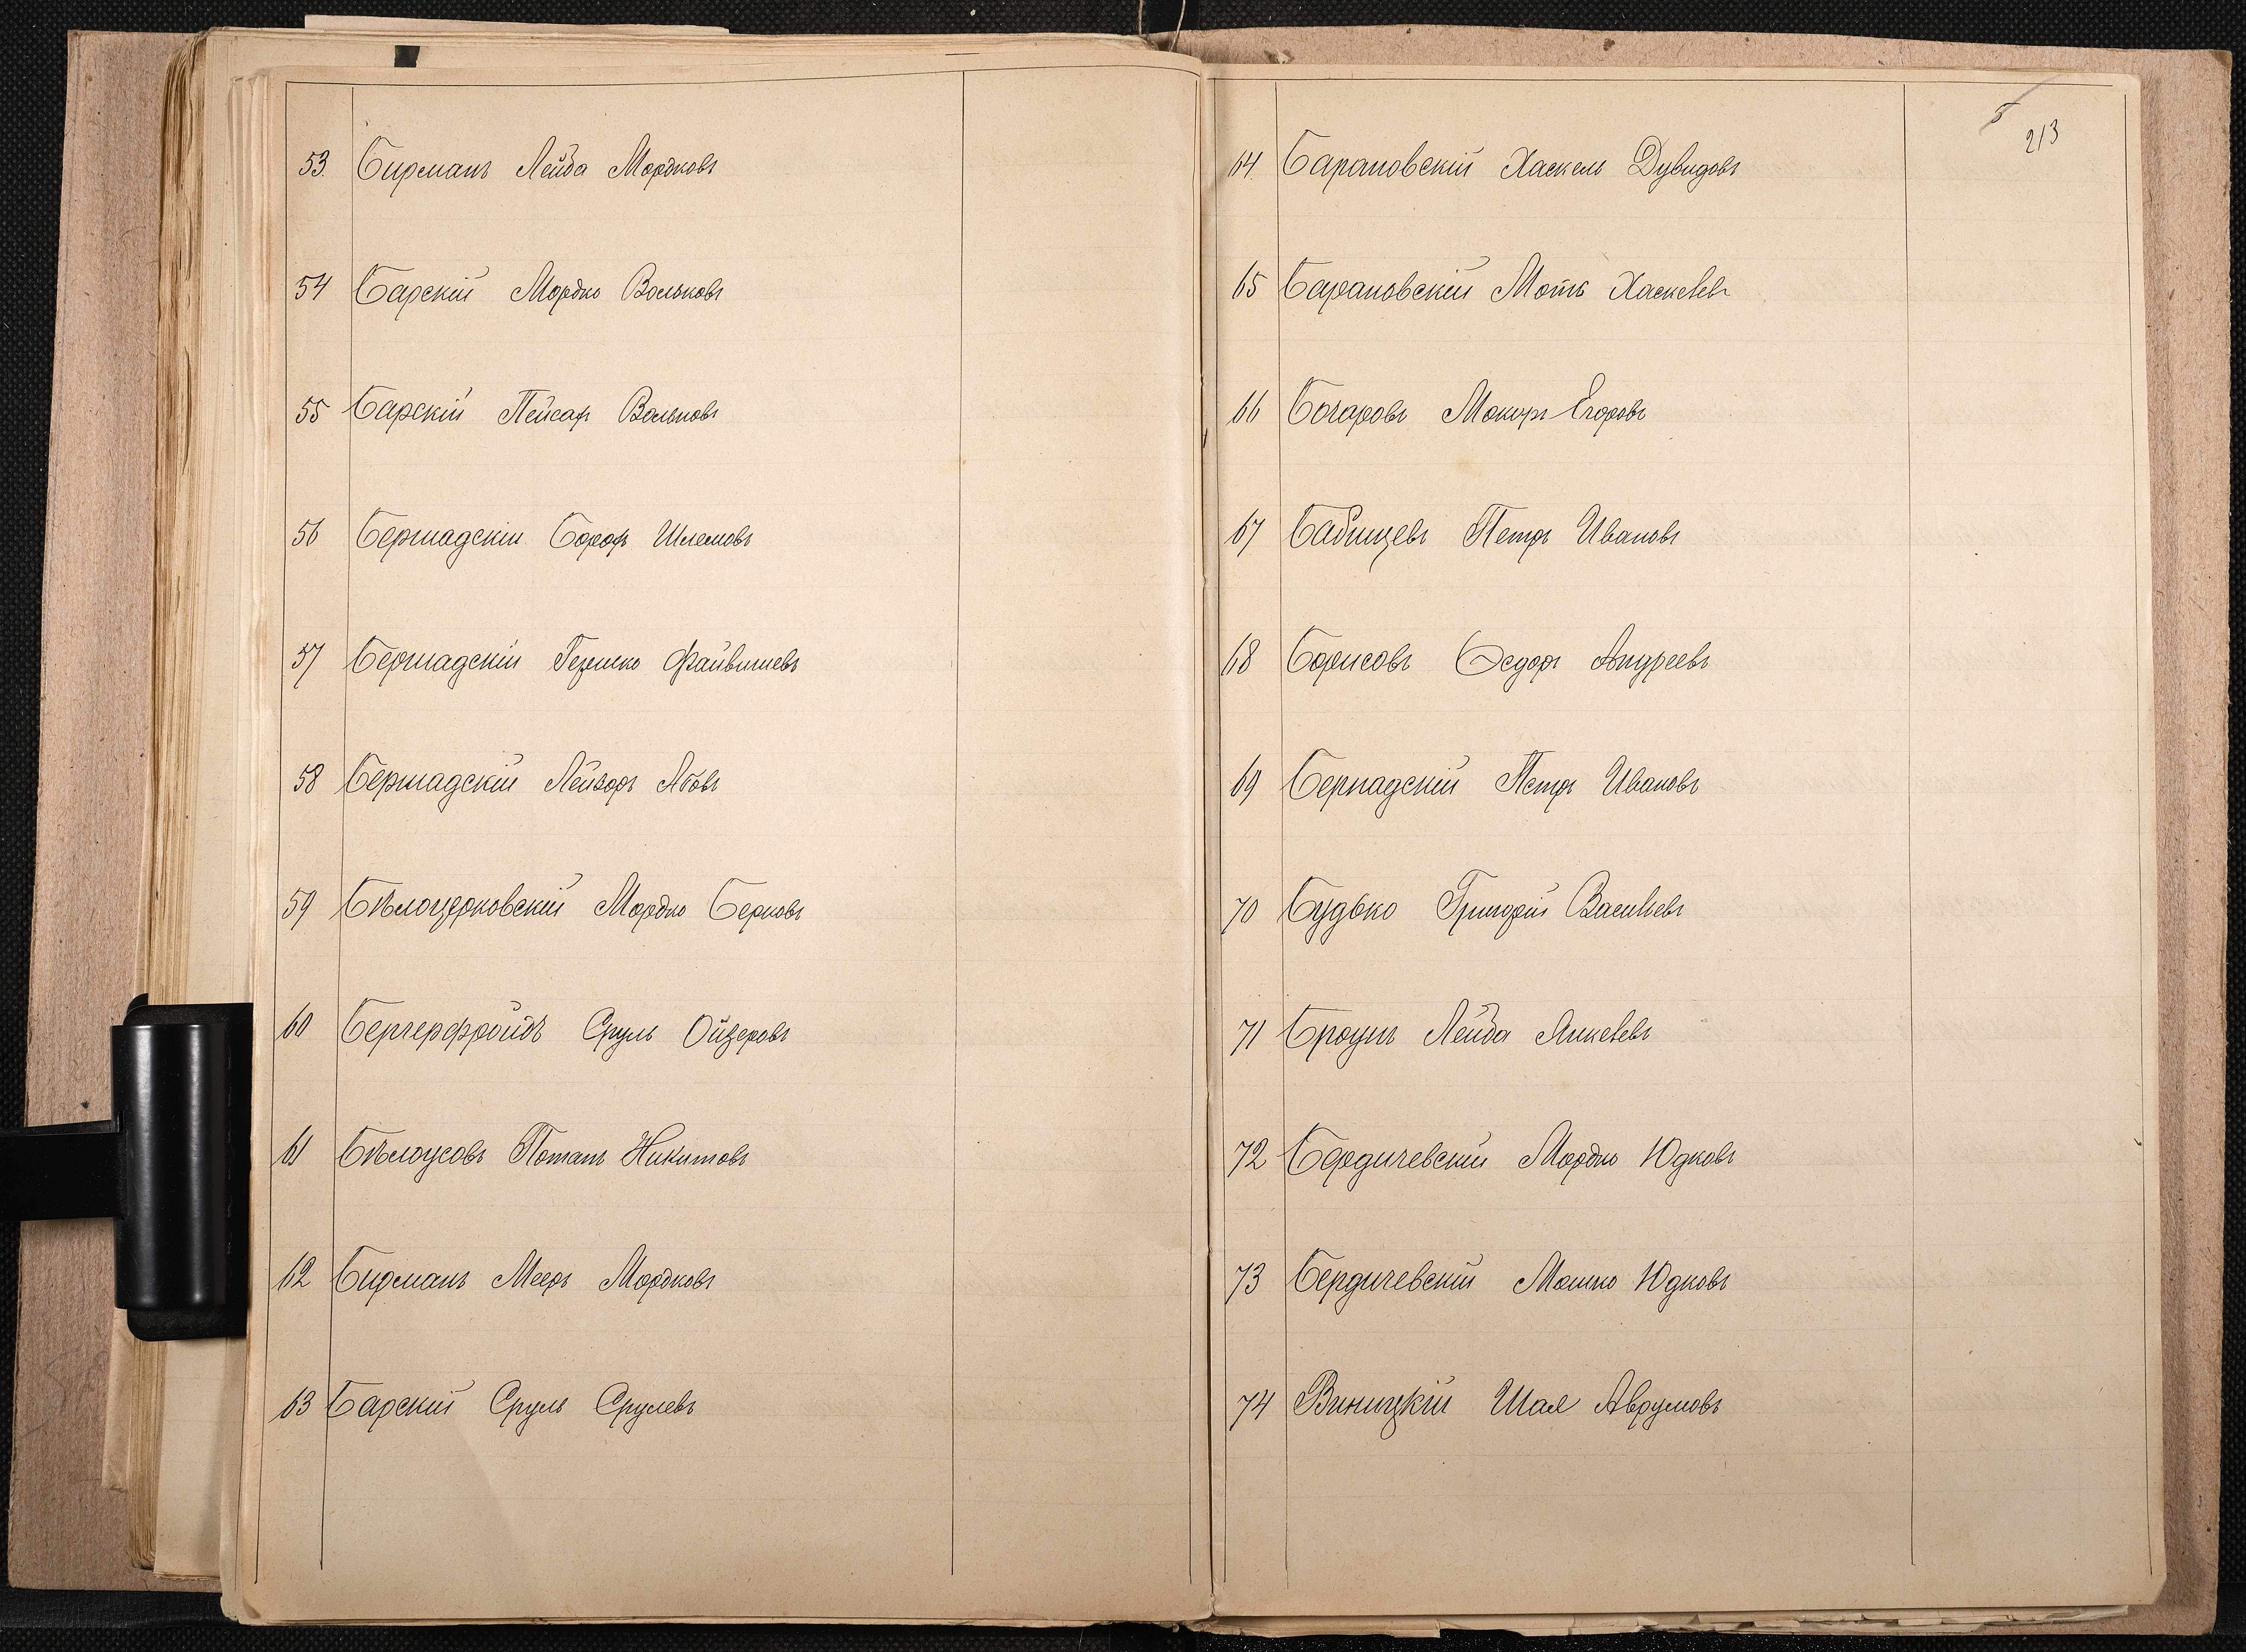 53. Бирманъ Лейба Мордковъ
54 Барскій Мордко Вольковъ
55 Барскій Пейсахъ Вольковъ
56 Бершадскій Борохъ Шлемовъ
57 Бершадскій Гершко Файвишевъ
58 Бершадскій Лейзоръ Абовъ
59 Бѣлоцерковскій Мордко Берковъ
60 Бергерфройдъ Сруль Ойзеровъ
61 Бѣлоусовъ Потапъ Никитовъ
62 Бирманъ Мееръ Мордковъ
63 Барскій Сруль Срулевъ
Б
213
64. Барановскій Хаскель Дувидовъ
65 Барановскій Моть Хаскелевъ
66 Бочаровъ Макаръ Егоровъ
67 Бабищевъ Петръ Ивановъ
68 Борисовъ Ѳедоръ Андреевъ
69 Бернадскій Петръ Ивановъ
70 Будько Григорій Васильевъ
71 Броунъ Лейба Янкелевъ
72 Бердичевскій Мордко Юдковъ
73 Бердичевскій Мошко Юдковъ
74 Виницкій Шая Аврумовъ